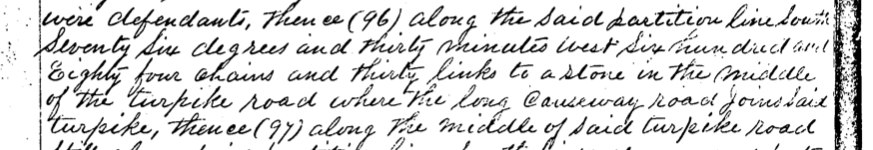 were defendants, thence (96) along the said partition line South
Seventy Six degrees and thirty minutes West Six hundred and
Eighty four chains and thirty links to a stone in the middle
of the turpike road where the long Causeway road joins said
turpike, thence (97) along the middle of said turpike road